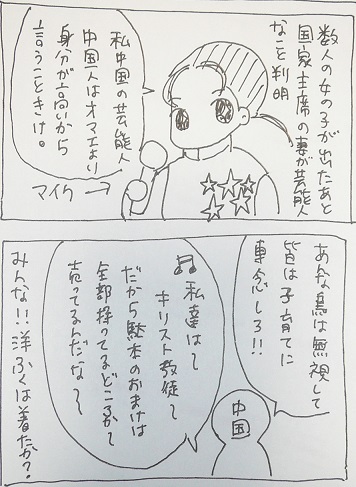 数人の女の子が出たあと
国家主席の妻が芸能人
なこと判明
私中国の芸能人
中国人はオマエより
身分が高いから
言うこときけ。
マイク→
あんな鳥は無視して
皆は子育てに
専念しろ!!
中国
♫私達は〜
キリスト教徒〜
だから駄本のおまけは
全部 どころか〜
売ってるんだな〜〜
みんな!!洋ふくは着たか?